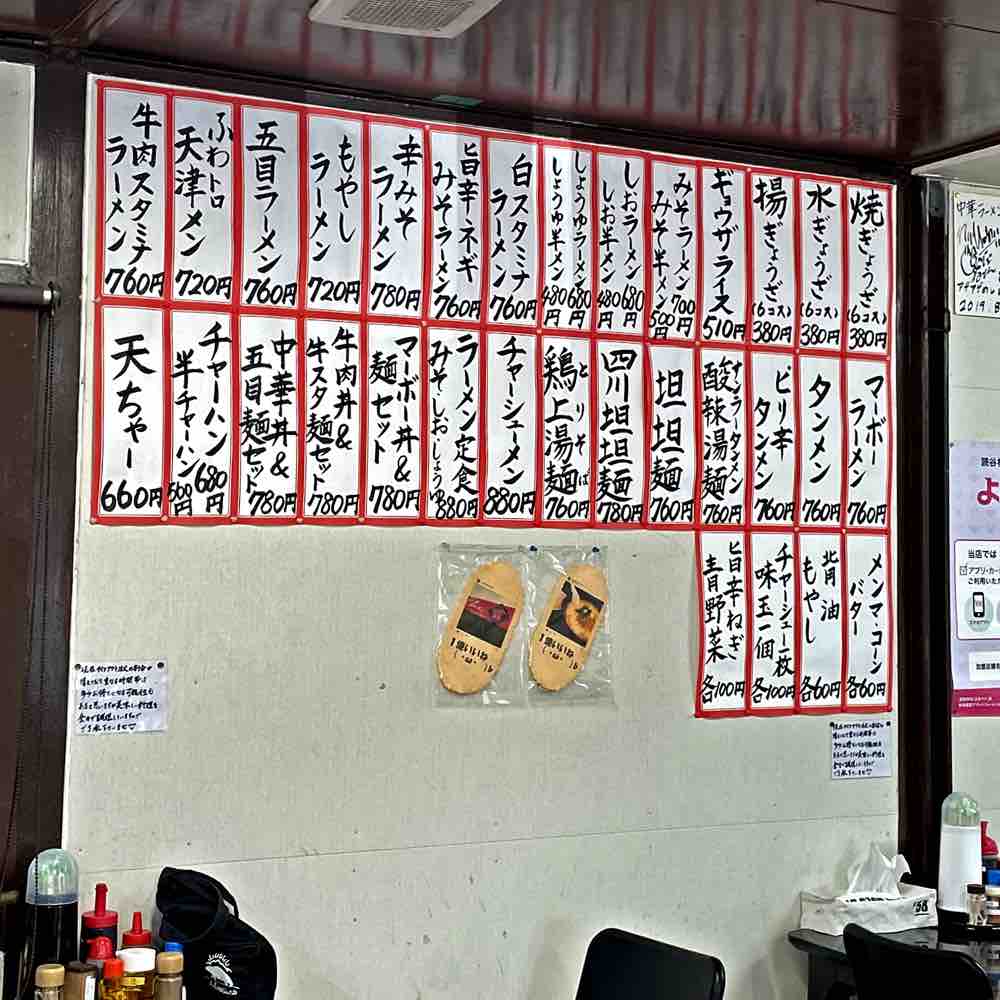 焼ぎょうざ
(6コ入)
380円
水ぎょうざ
(6コ入)
380円
揚ぎょうざ
(6コ入)
380円
ギョウザライス
510円
みそラーメン 700円
みそ半ラーメン 500円
しおラーメン 680円
しお半ラーメン 480円
しょうゆラーメン 680円
しょうゆ半ラーメン 480円
白スタミナ
ラーメン
760円
旨辛ネギ
みそラーメン
760円
辛みそ
ラーメン
780円
もやし
ラーメン
720円
五目ラーメン
760円
ふわトロ
天津メン
720円
牛肉スタミナ
ラーメン
760円
マーボー
ラーメン
760円
タンメン
760円
ピリ辛
タンメン
760円
サンラータンメン
酸辣湯麺
760円
坦坦麺
760円
四川坦坦麺
780円
とりそば
鶏上湯麺
760円
チャーシューメン
880円
ラーメン定食
みそしおしょうゆ
880円
マーボー丼&
麺セット
780円
牛肉丼&
牛スタ麺セット
780円
中華丼&
五目麺セット
780円
チャーハン 680円
半チャーハン 500円
天ちゃー
660円
メンマ・コーン
バター
各60円
背油
もやし
各60円
チャーシュー一枚
味玉一個
各100円
旨辛ねぎ
青野菜
各100円
中華ラーメ
2019.
当店では
アプリ・カー
ご利用いた